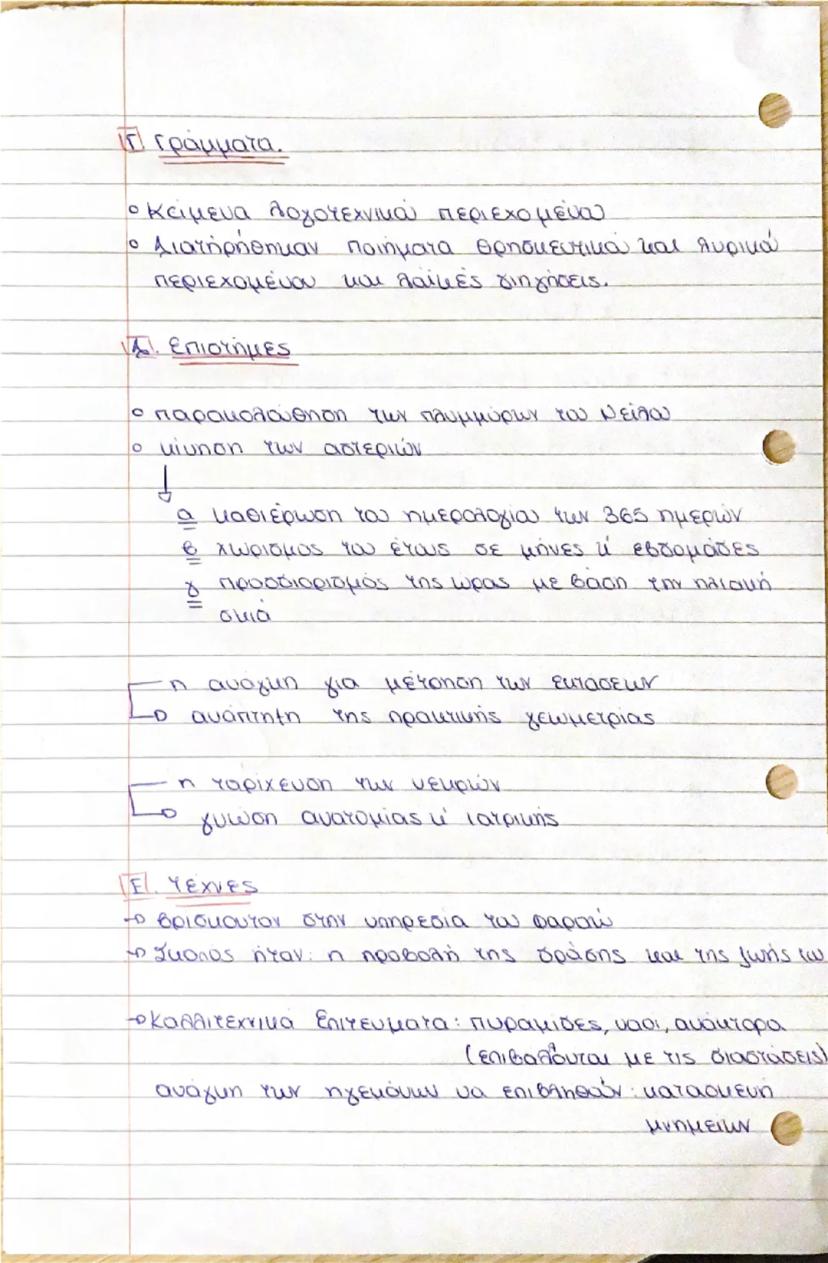 Γ. Γράμματα.
ο Κείμενα λογοτεχνικού περιεχομένου
ο Διατηρήθηκαν ποιήματα θρησκευτικού και λυρικού
περιεχομένου και λαϊκές διηγήσεις.
Δ. Επιστήμες
ο παρακολούθηση των πλημμύρων του Νείλου
ο κίνηση των αστεριών
α καθιέρωση του ημερολογίου των 365 ημερών
β χωρισμός του έτους σε μήνες κ' εβδομάδες
γ προσδιορισμός της ώρας με βάση την ηλιακή
σκιά
η ανάγκη για μέτρηση των εκτάσεων
ανάπτυξη της πρακτικής γεωμετρίας
η ταρίχευση των νεκρών
γνώση ανατομίας κ' ιατρικής
Ε. Τέχνες
→ βρίσκονταν στην υπηρεσία του Φαραώ
→ Σκοπός ήταν: η προβολή της δράσης και της ζωής του
→ Καλλιτεχνικά Επιτεύματα: πυραμίδες, ναοί, ανάκτορα
(επιβάλονται με τις διαστάσεις)
ανάγκη των ηγεμόνων να επιβληθούν: κατασκευή
μνημείων